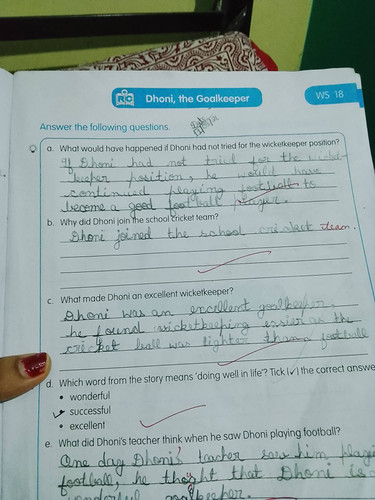 RC Dhoni, the Goalkeeper WS 18
Answer the following questions.
a. What would have happened if Dhoni had not tried for the wicketkeeper position?
If Dhoni had not tried for the wicket-
keeper position, he would have
continued playing football to
become a good football player.
b. Why did Dhoni join the school cricket team?
Dhoni joined the school cricket team.
c. What made Dhoni an excellent wicketkeeper?
Dhoni was an excellent goalkeeper.
he found wicketkeeping easier as the
cricket ball was lighter than football
d. Which word from the story means 'doing well in life'? Tick (✓) the correct answe
• wonderful
• successful
• excellent
e. What did Dhoni's teacher think when he saw Dhoni playing football?
One day Dhoni's teacher saw him playi
football, he thoght that Dhoni is
wonderful goalkeeper.